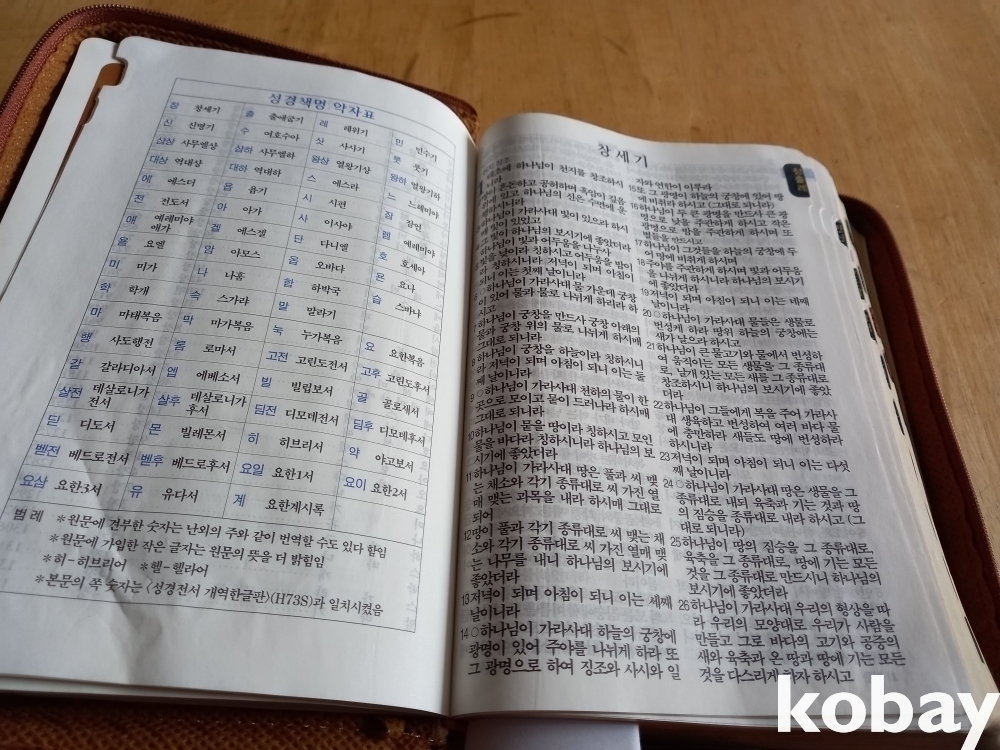 성경책명 약자표
창 창세기 출 출애굽기 레 레위기 민 민수기
신 신명기 수 여호수아 삿 사사기 룻 룻기
삼상 사무엘상 삼하 사무엘하 왕상 열왕기상 왕하 열왕기하
대상 역대상 대하 역대하 스 에스라 느 느헤미야
에 에스더 욥 욥기 시 시편 잠 잠언
전 전도서 아 아가 사 이사야 렘 예레미야
애 예레미야애가 겔 에스겔 단 다니엘 호 호세아
욜 요엘 암 아모스 옵 오바댜 욘 요나
미 미가 나 나훔 합 하박국 습 스바냐
학 학개 슥 스가랴 말 말라기
마 마태복음 막 마가복음 눅 누가복음 요 요한복음
행 사도행전 롬 로마서 고전 고린도전서 고후 고린도후서
갈 갈라디아서 엡 에베소서 빌 빌립보서 골 골로새서
살전 데살로니가전서 살후 데살로니가후서 딤전 디모데전서 딤후 디모데후서
딛 디도서 몬 빌레몬서 히 히브리서 약 야고보서
벧전 베드로전서 벧후 베드로후서 요일 요한1서 요이 요한2서
요삼 요한3서 유 유다서 계 요한계시록
범 례 *원문에 견부한 숫자는 난외의 주와 같이 번역할 수도 있다 함임
*원문에 가입한 작은 글자는 원문의 뜻을 더 밝힘임
*히-히브리어 *헬-헬라어
*본문의 쪽 숫자는 〈성경전서 개역한글판〉(H73S)과 일치시켰음
창세기
하나님이 천지를 창조하시
니라
혼돈하고 공허하며 흑암이 깊음
위에 있고 하나님의 신은 수면에 운
행하시니라
하나님이 가라사대 빛이 있으라 하시
매 빛이 있었고
그 빛이 하나님의 보시기에 좋았더라
하나님이 빛과 어두움을 나누사
빛을 낮이라 칭하시고 어두움을 밤이
라 칭하시니라 저녁이 되며 아침이
되니 이는 첫째 날이니라
6 ○하나님이 가라사대 물 가운데 궁창
이 있어 물과 물로 나뉘게 하리라 하
시고
7 하나님이 궁창을 만드사 궁창 아래의
물과 궁창 위의 물로 나뉘게 하시매
그대로 되니라
8 하나님이 궁창을 하늘이라 칭하시니
라 저녁이 되며 아침이 되니 이는 둘
째 날이니라
9 ○하나님이 가라사대 천하의 물이 한
곳으로 모이고 뭍이 드러나라 하시매
그대로 되니라
10 하나님이 뭍을 땅이라 칭하시고 모인
물을 바다라 칭하시니라 하나님의 보
시기에 좋았더라
11 하나님이 가라사대 땅은 풀과 씨 맺
는 채소와 각기 종류대로 씨 가진 열
매 맺는 과목을 내라 하시매 그대로
되어
12 땅이 풀과 각기 종류대로 씨 맺는 채
소와 각기 종류대로 씨 가진 열매 맺
는 나무를 내니 하나님의 보시기에
좋았더라
13 저녁이 되며 아침이 되니 이는 세째
날이니라
14 ○하나님이 가라사대 하늘의 궁창에
광명이 있어 주야를 나뉘게 하라 또
그 광명으로 하여 징조와 사시와 일
자와 연한이 이루라
15 또 그 광명이 하늘의 궁창에 있어 땅
에 비취라 하시고 (그대로 되니라)
16 하나님이 두 큰 광명을 만드사 큰 광
명으로 낮을 주관하게 하시고 작은
광명으로 밤을 주관하게 하시며 또
별들을 만드시고
17 하나님이 그것들을 하늘의 궁창에 두
어 땅에 비취게 하시며
18 주야를 주관하게 하시며 빛과 어두움
을 나뉘게 하시니라 하나님의 보시기
에 좋았더라
19 저녁이 되며 아침이 되니 이는 네째
날이니라
20 ○하나님이 가라사대 물들은 생물로
번성케 하라 땅위 하늘의 궁창에는
새가 날으라 하시고
21 하나님이 큰 물고기와 물에서 번성하
여 움직이는 모든 생물을 그 종류대
로, 날개 있는 모든 새를 그 종류대로
창조하시니 하나님의 보시기에 좋았
더라
22 하나님이 그들에게 복을 주어 가라사
대 생육하고 번성하여 여러 바다 물
에 충만하라 새들도 땅에 번성하라
하시니라
23 저녁이 되며 아침이 되니 이는 다섯
째 날이니라
24 ○하나님이 가라사대 땅은 생물을 그
종류대로 내되 육축과 기는 것과 땅
의 짐승을 종류대로 내라 하시고 (그
대로 되니라)
25 하나님이 땅의 짐승을 그 종류대로,
육축을 그 종류대로, 땅에 기는 모든
것을 그 종류대로 만드시니 하나님의
보시기에 좋았더라
26 하나님이 가라사대 우리의 형상을 따
라 우리의 모양대로 우리가 사람을
만들고 그로 바다의 고기와 공중의
새와 육축과 온 땅과 땅에 기는 모든
것을 다스리게 하자 하시고
kobay